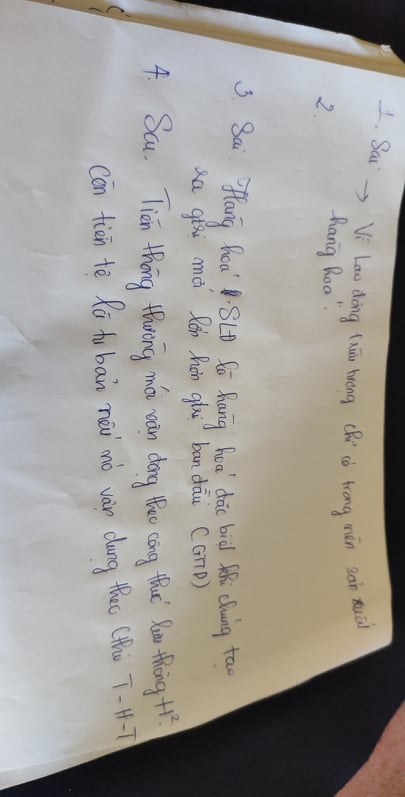 1. Sai → Vì lao động trừu tượng chỉ có trong nền sản xuất
hàng hoá.
2.
3. Sai. Hàng hoá SLĐ là hàng hoá đặc biệt khi chúng tạo
ra gtri mới lớn hơn gtri ban đầu (GTTD)
4. Sai. Tiền thông thường mới vận động theo công thức lưu thông H².
Còn tiền tệ là tư bản nếu nó vận dụng theo cthu T-H-T